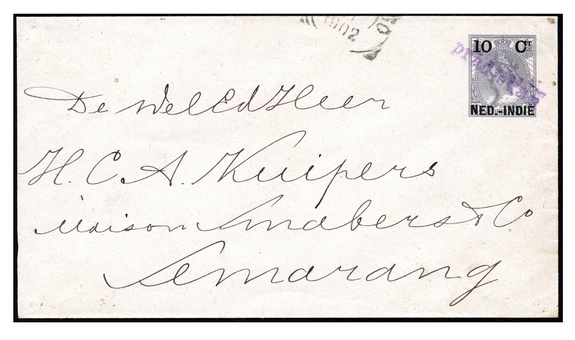 1902
10 Ct
NED.-INDIË
De WelEdHeer
H. C. A. Kuipers
Maison Smabers & Co
Semarang